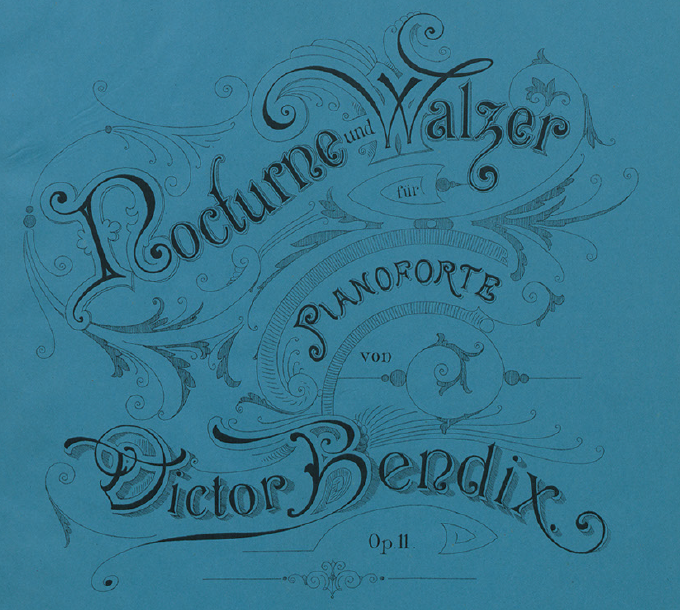 Nocturne und Walzer
für
PIANOFORTE
von
Victor Bendix.
Op. 11